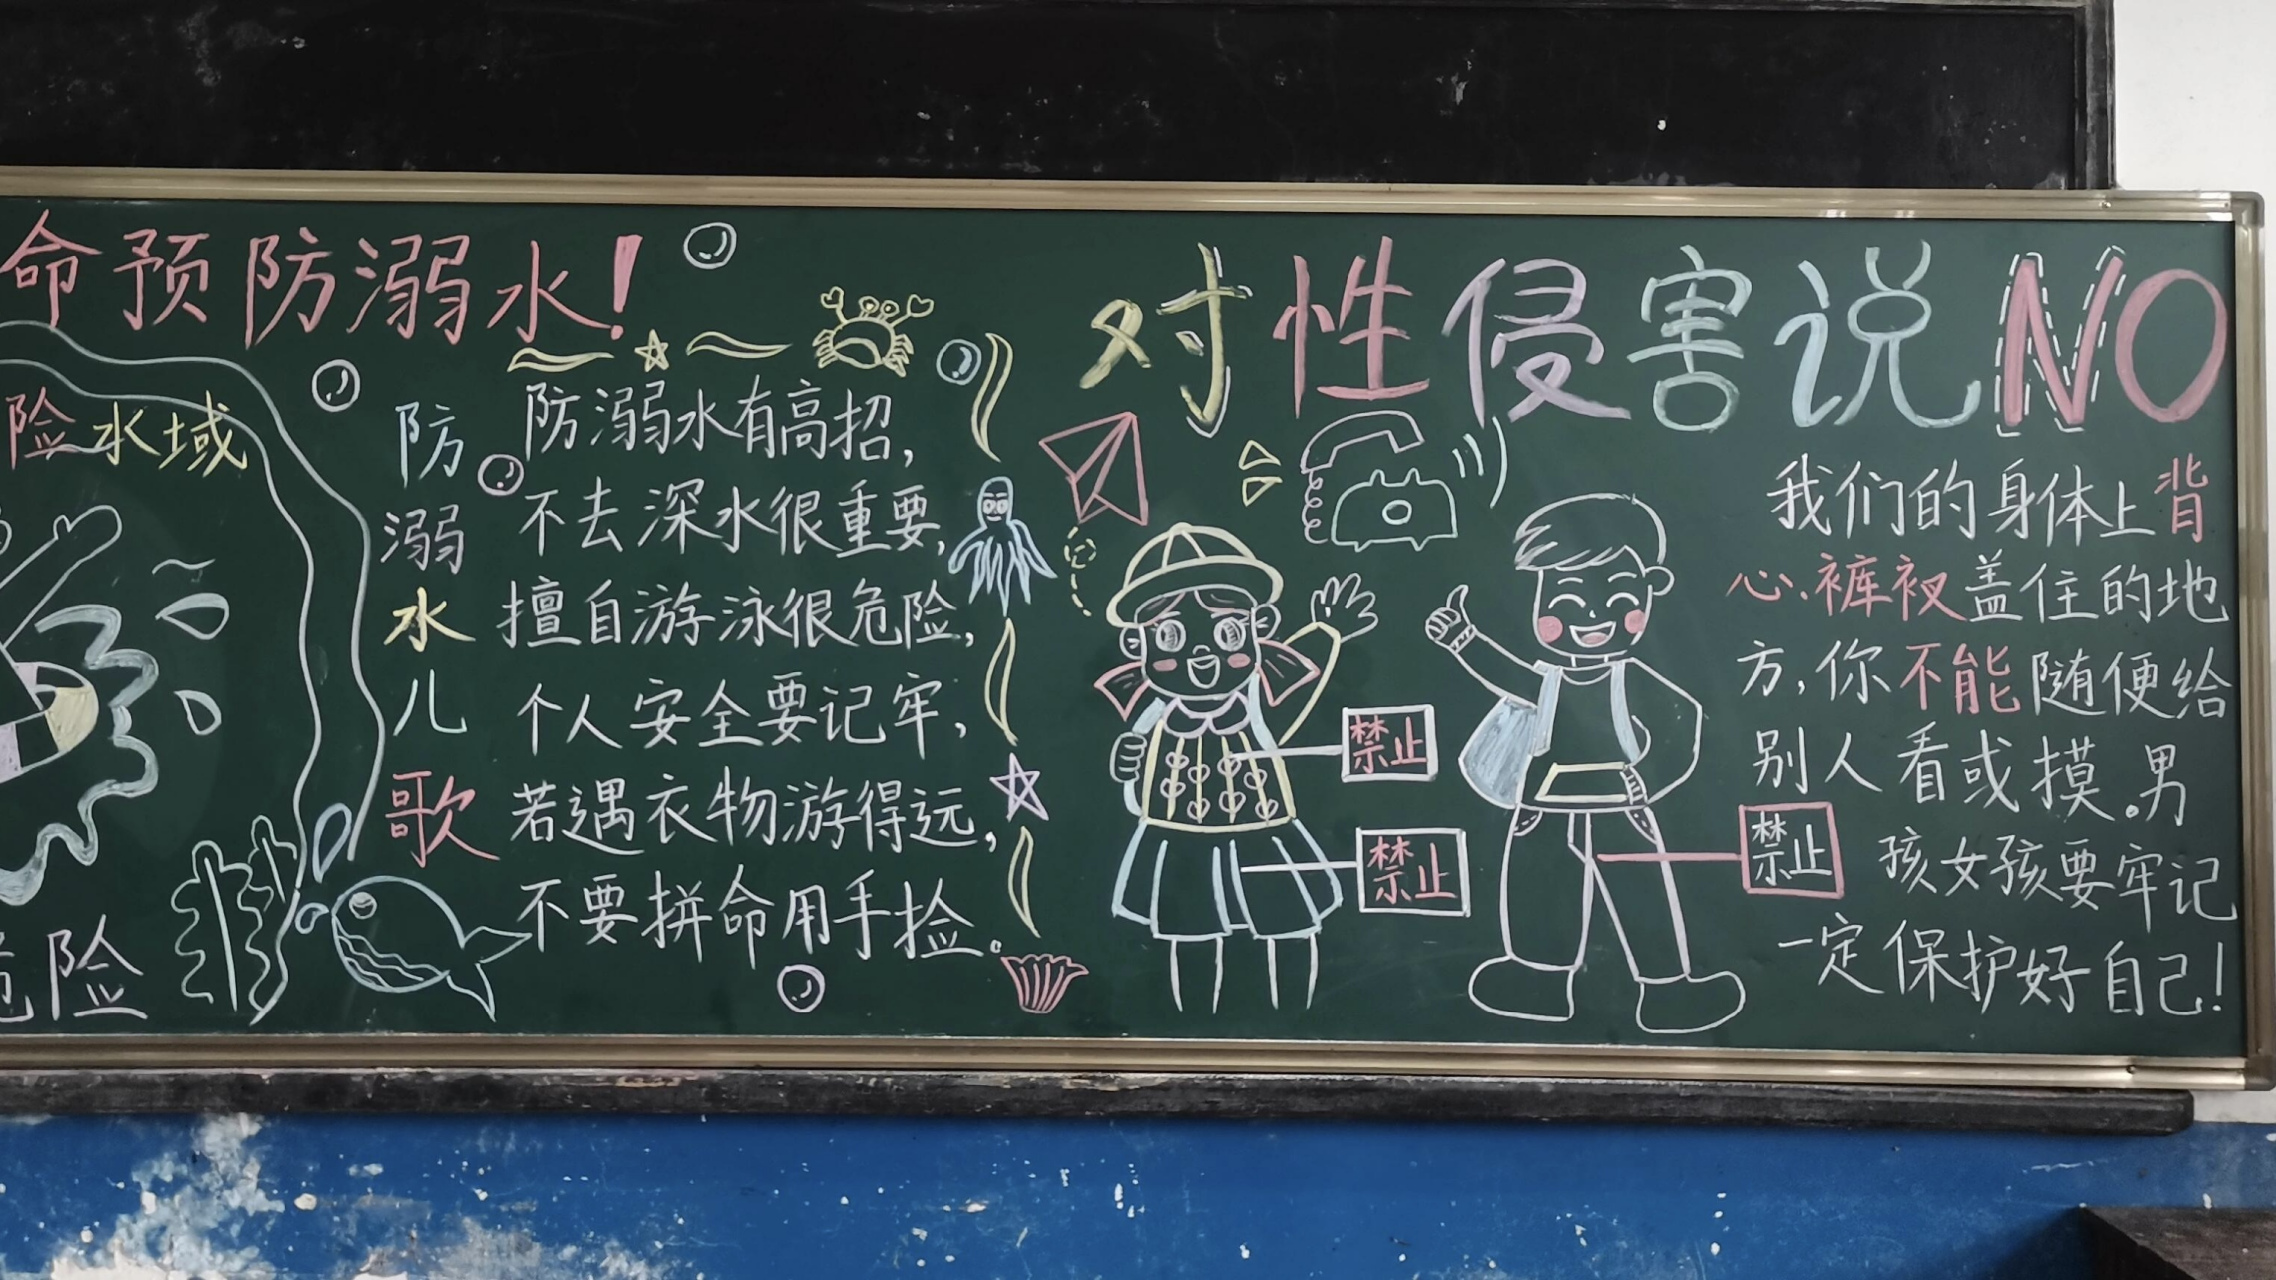 命预防溺水!
险水域
危险
防溺水儿歌
防溺水有高招,
不去深水很重要,
擅自游泳很危险,
个人安全要记牢,
若遇衣物游得远,
不要拼命用手捡。
对性侵害说NO
禁止
禁止
禁止
我们的身体上背
心、裤衩盖住的地
方,你不能随便给
别人看或摸。男
孩女孩要牢记
一定保护好自己!